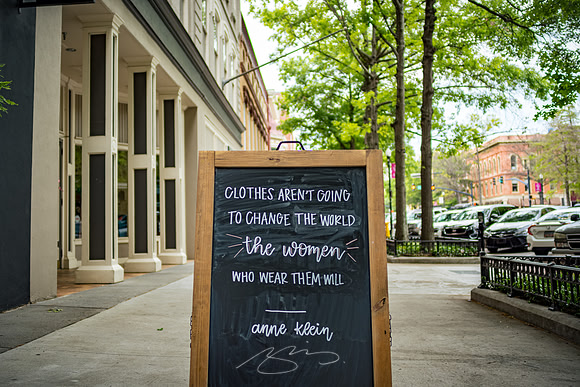 CLOTHES AREN'T GOING
TO CHANGE THE WORLD
the women
WHO WEAR THEM WILL
anne klein